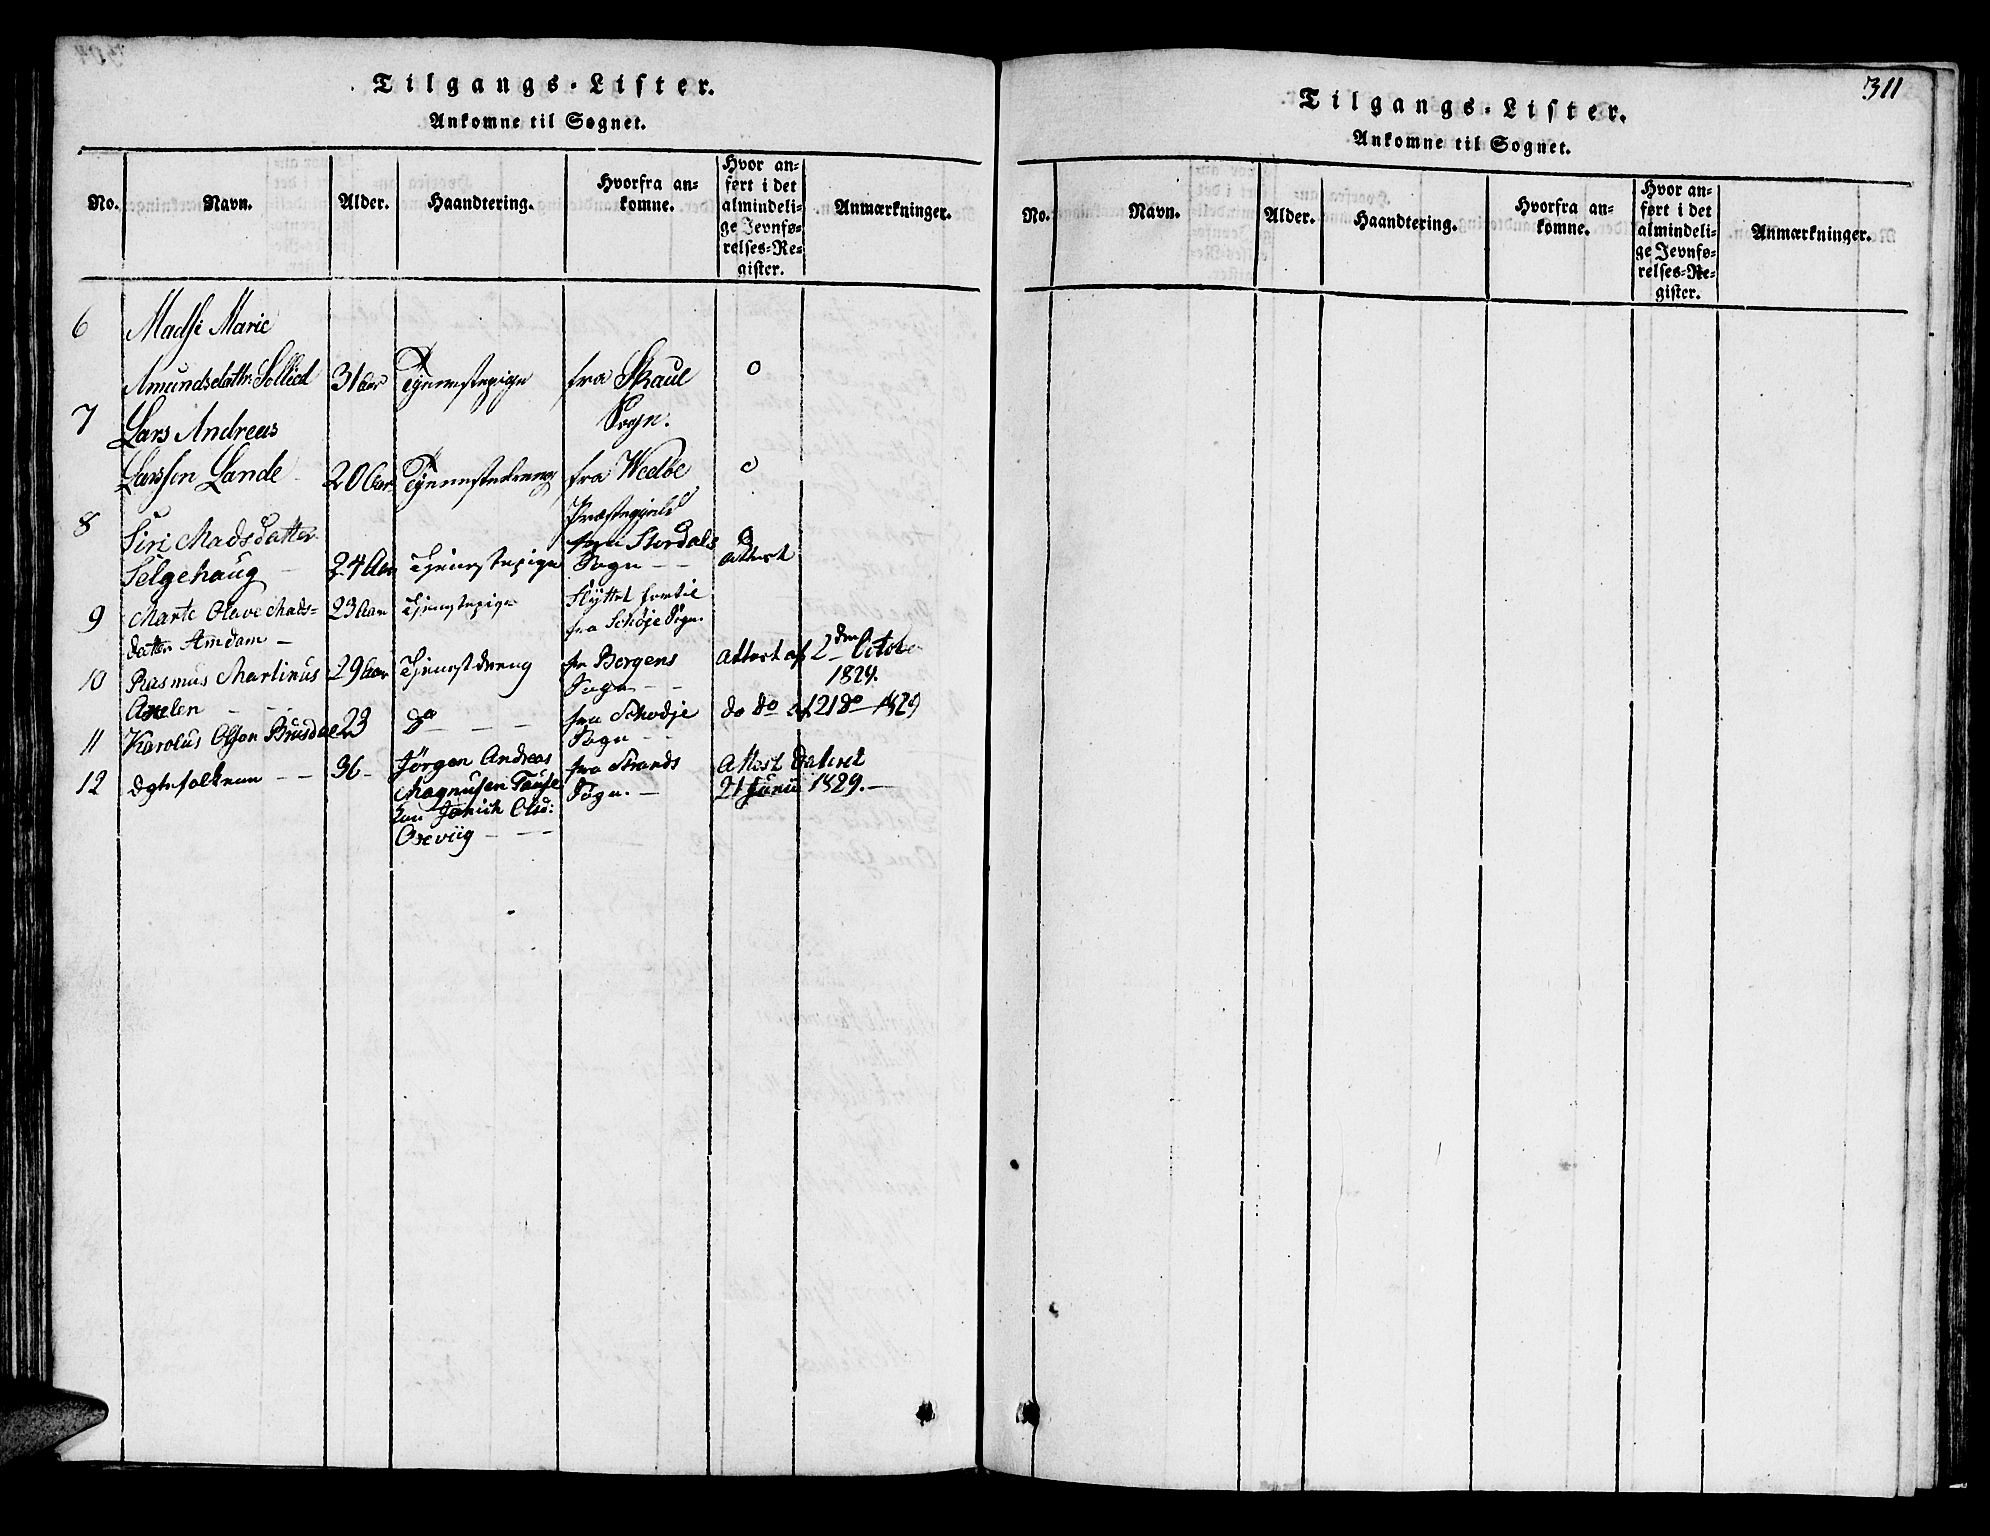 Tilgangs-Lister.
Ankomne til Sognet.
No.
Navn.
Alder.
Haandtering.
Hvorfra an=
komne.
Hvor an=
ført i det
almindeli=
ge Jevnfø=
relses=Re=
gister.
Anmærkninger.
6 Madsi Marie
Amundsdattr Sollied 31 aar Tjenestepige fra Skaue o
Sogn.
7 Lars Andreas
Larssen Lande 20 aar Tjenestedreng fra Wedøe o
Præstegield
8 Siri Madsdatter
Selgehaug 24 Aar Tjenestepige fra Stordals
Sogn attest
9 Marte Olave Mads=
datter Amdam 23 Aar Tjenstepige Flyttet hertil
fra Schøje Sogn.
10 Rasmus Martinus 29 Aar Tjenestdreng fr Borgens
Sogn attest af 2den Octob
1829.
11 Karolus Olsen Brusdal 23 do fra Schodje
Sogn do do af 21 do 1829
12 Ægtefolkene 36 Jørgen Andreas
Magnusen
Olsd:
fra Strands
Sogn. Attest Dateret
21 Junii 1829.
311
Tilgangs-Lister.
Ankomne til Sognet.
No.
Navn.
Alder.
Haandtering.
Hvorfra an=
komne.
Hvor an=
ført i det
almindeli=
ge Jevnfø=
relses=Re=
gister.
Anmærkninger.